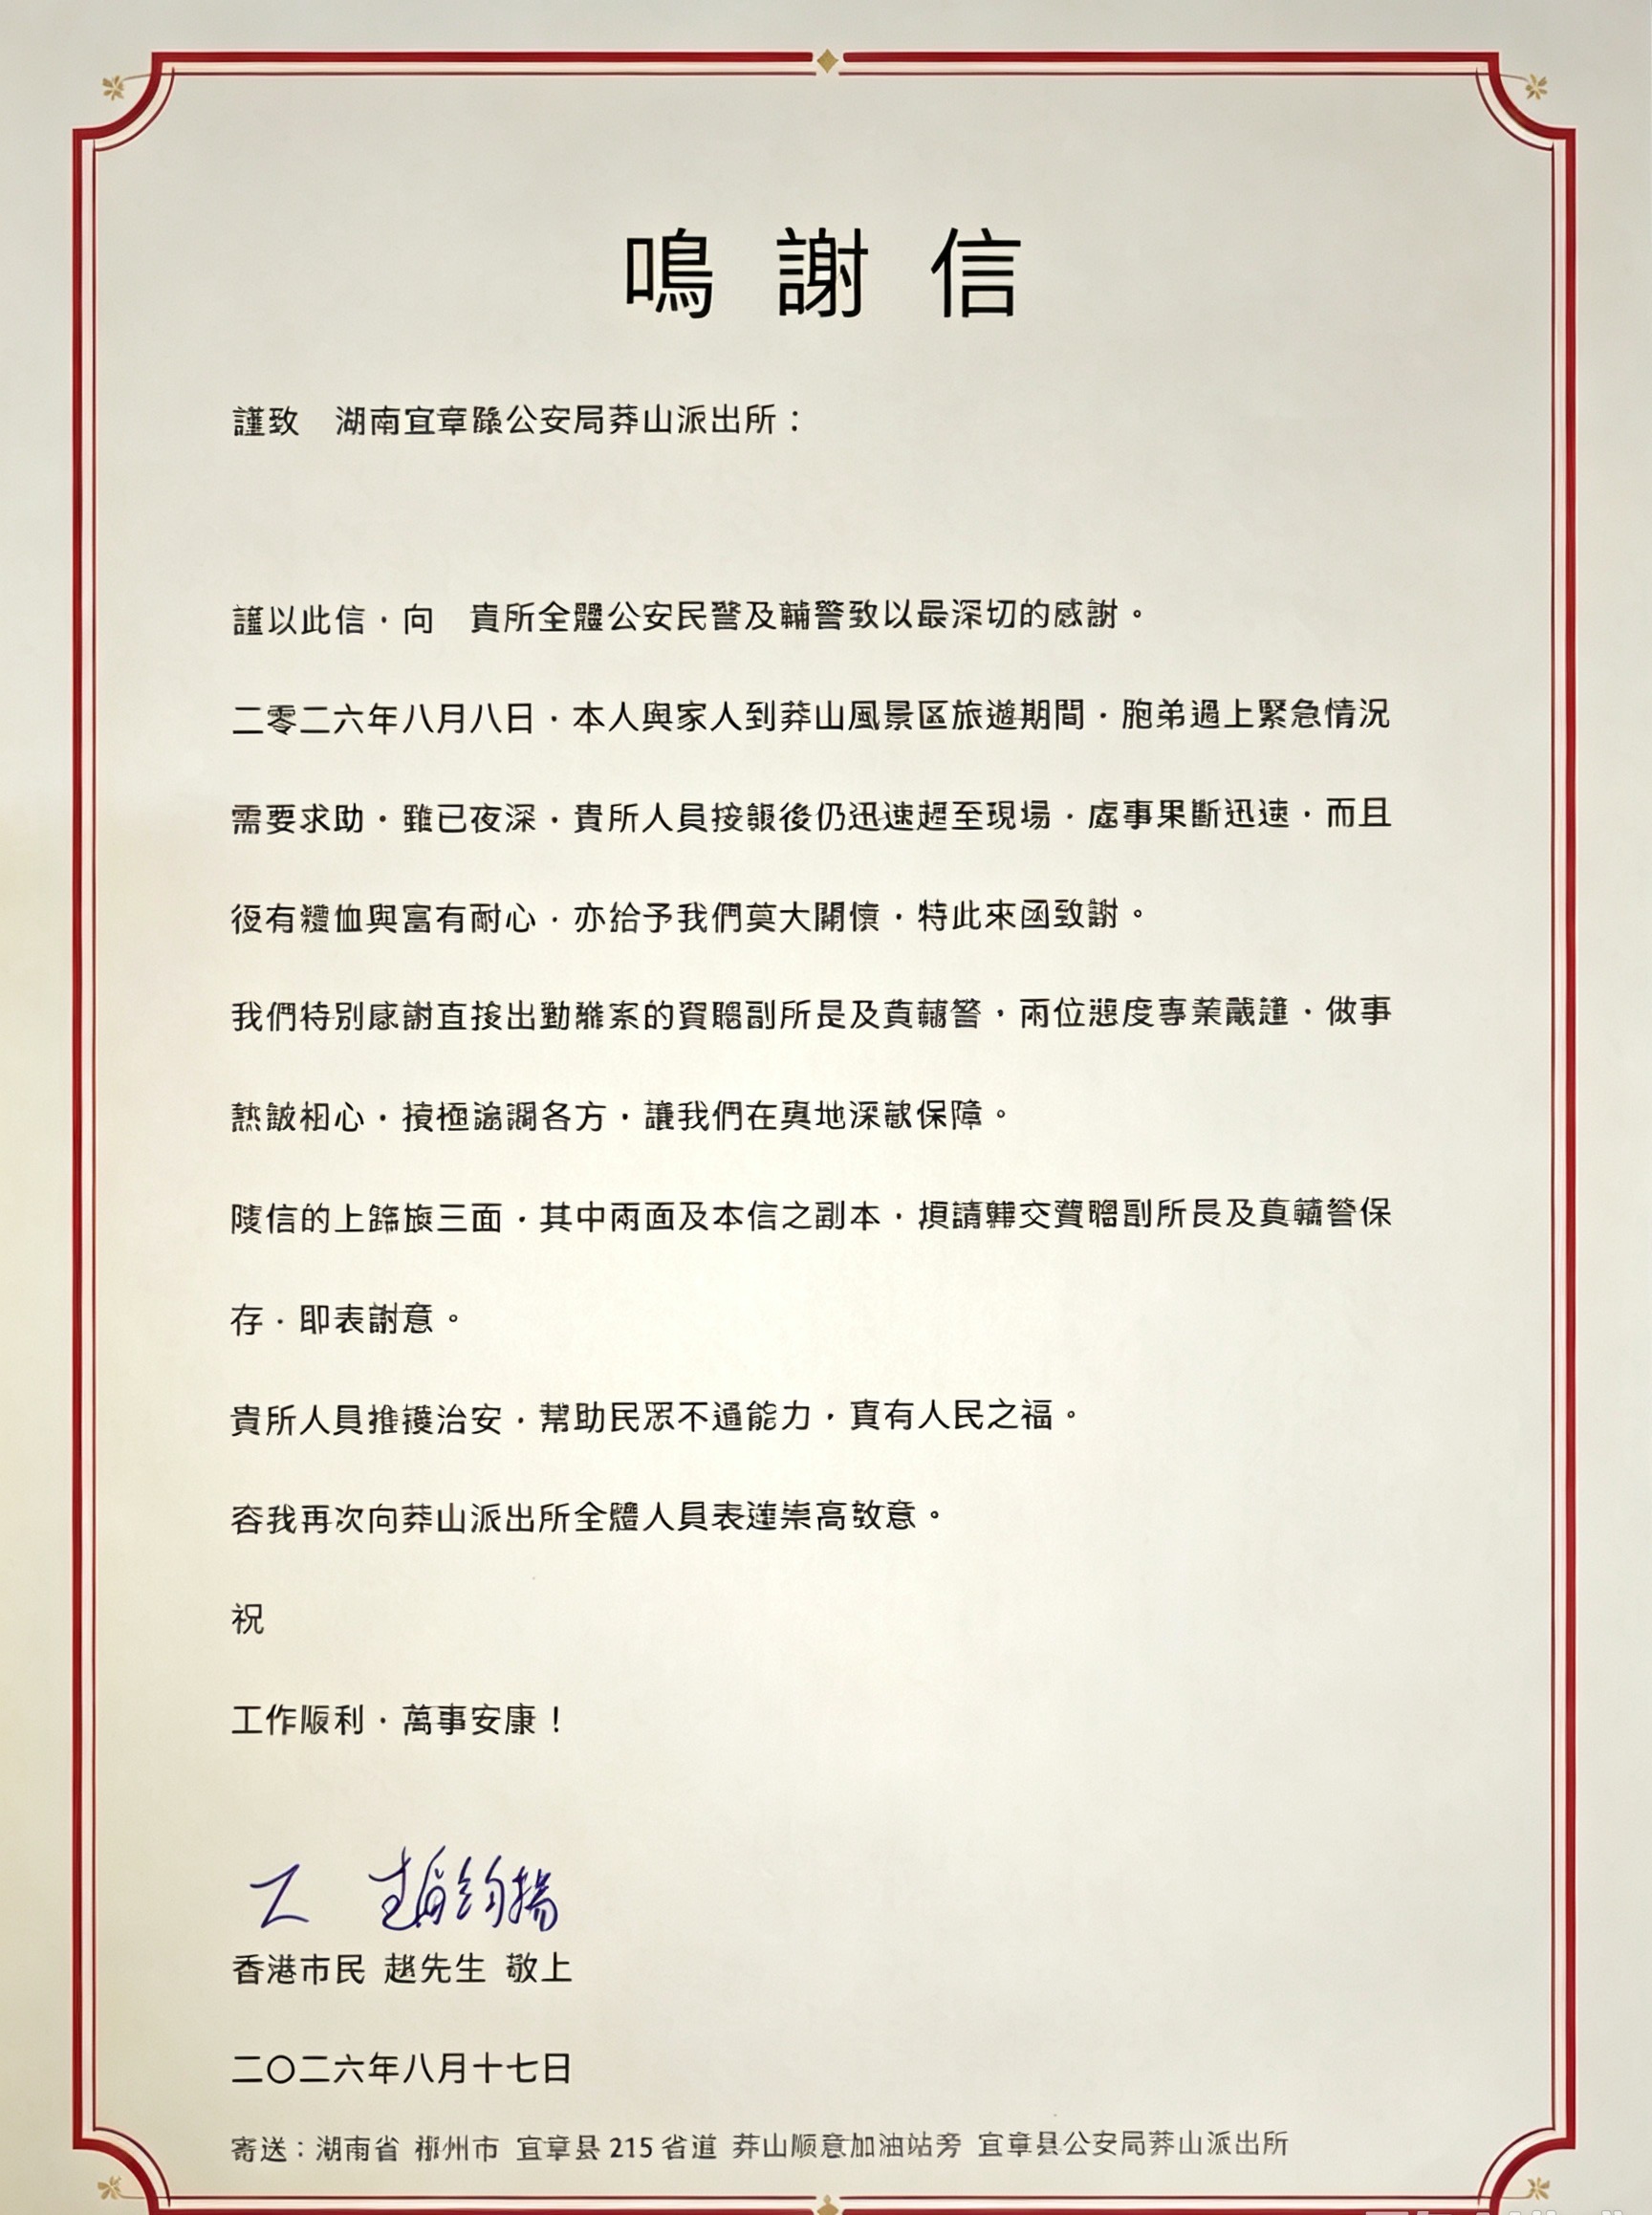 鳴謝信
謹致 湖南宜章縣公安局莽山派出所：
謹以此信，向 貴所全體公安民警及輔警致以最深切的感謝。
二零二六年八月八日，本人與家人到莽山風景區旅遊期間，胞弟遇上緊急情況
需要求助。雖已夜深，貴所人員接報後仍迅速趕至現場，處事果斷迅速，而且
有體恤與富有耐心，亦給予我們莫大關懷，特此來函致謝。
我們特別感謝直接出勤的副所長及輔警，兩位態度專業嚴謹，做事
心，積極協調各方，讓我們在異地深感保障。
隨信的上錦旗三面，其中兩面及本信之副本，煩請轉交副所長及輔警保
存，即表謝意。
貴所人員維護治安，幫助民眾不遺能力，實有人民之福。
容我再次向莽山派出所全體人員表達崇高敬意。
祝
工作順利，萬事安康！
香港市民 趙先生 敬上
二〇二六年八月十七日
寄送：湖南省 郴州市 宜章县 215 省道 莽山顺意加油站旁 宜章县公安局莽山派出所